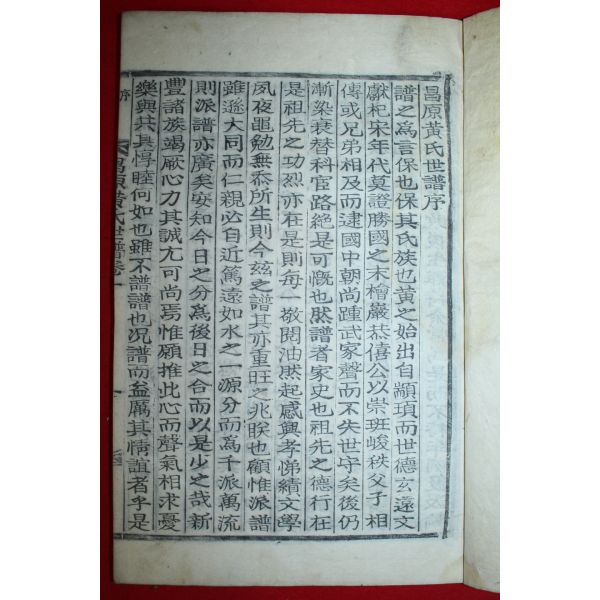 昌原黃氏世譜序
譜之爲言保也保其氏族也黃之始出自顓頊而世德玄遠文
獻杞宋年代莫證勝國之末檜巖恭僖公以崇班峻秩父子相
傳或兄弟相及而逮國中朝尚踵武家聲而不失世守矣後仍
漸染衰替科官路絶是可慨也然譜者家史也祖先之德行在
是祖先之功烈亦在是則每一敬閱油然起感興孝悌績文學
夙夜黽勉無忝所生則今玆之譜其亦重旺之兆朕也顧惟派譜
雖遜大同而仁親必自近篤遠如水之一源分而爲千派萬流
則派譜亦廣矣安知今日之分爲後日之合而以是少之哉新
豐諸族竭厥心力其誠尤可尚焉惟願推此心而聲氣相求憂
樂與共其惇睦何如也雖不譜譜也况譜而益厲其情誼者乎是
序
昌原黃氏世譜卷一